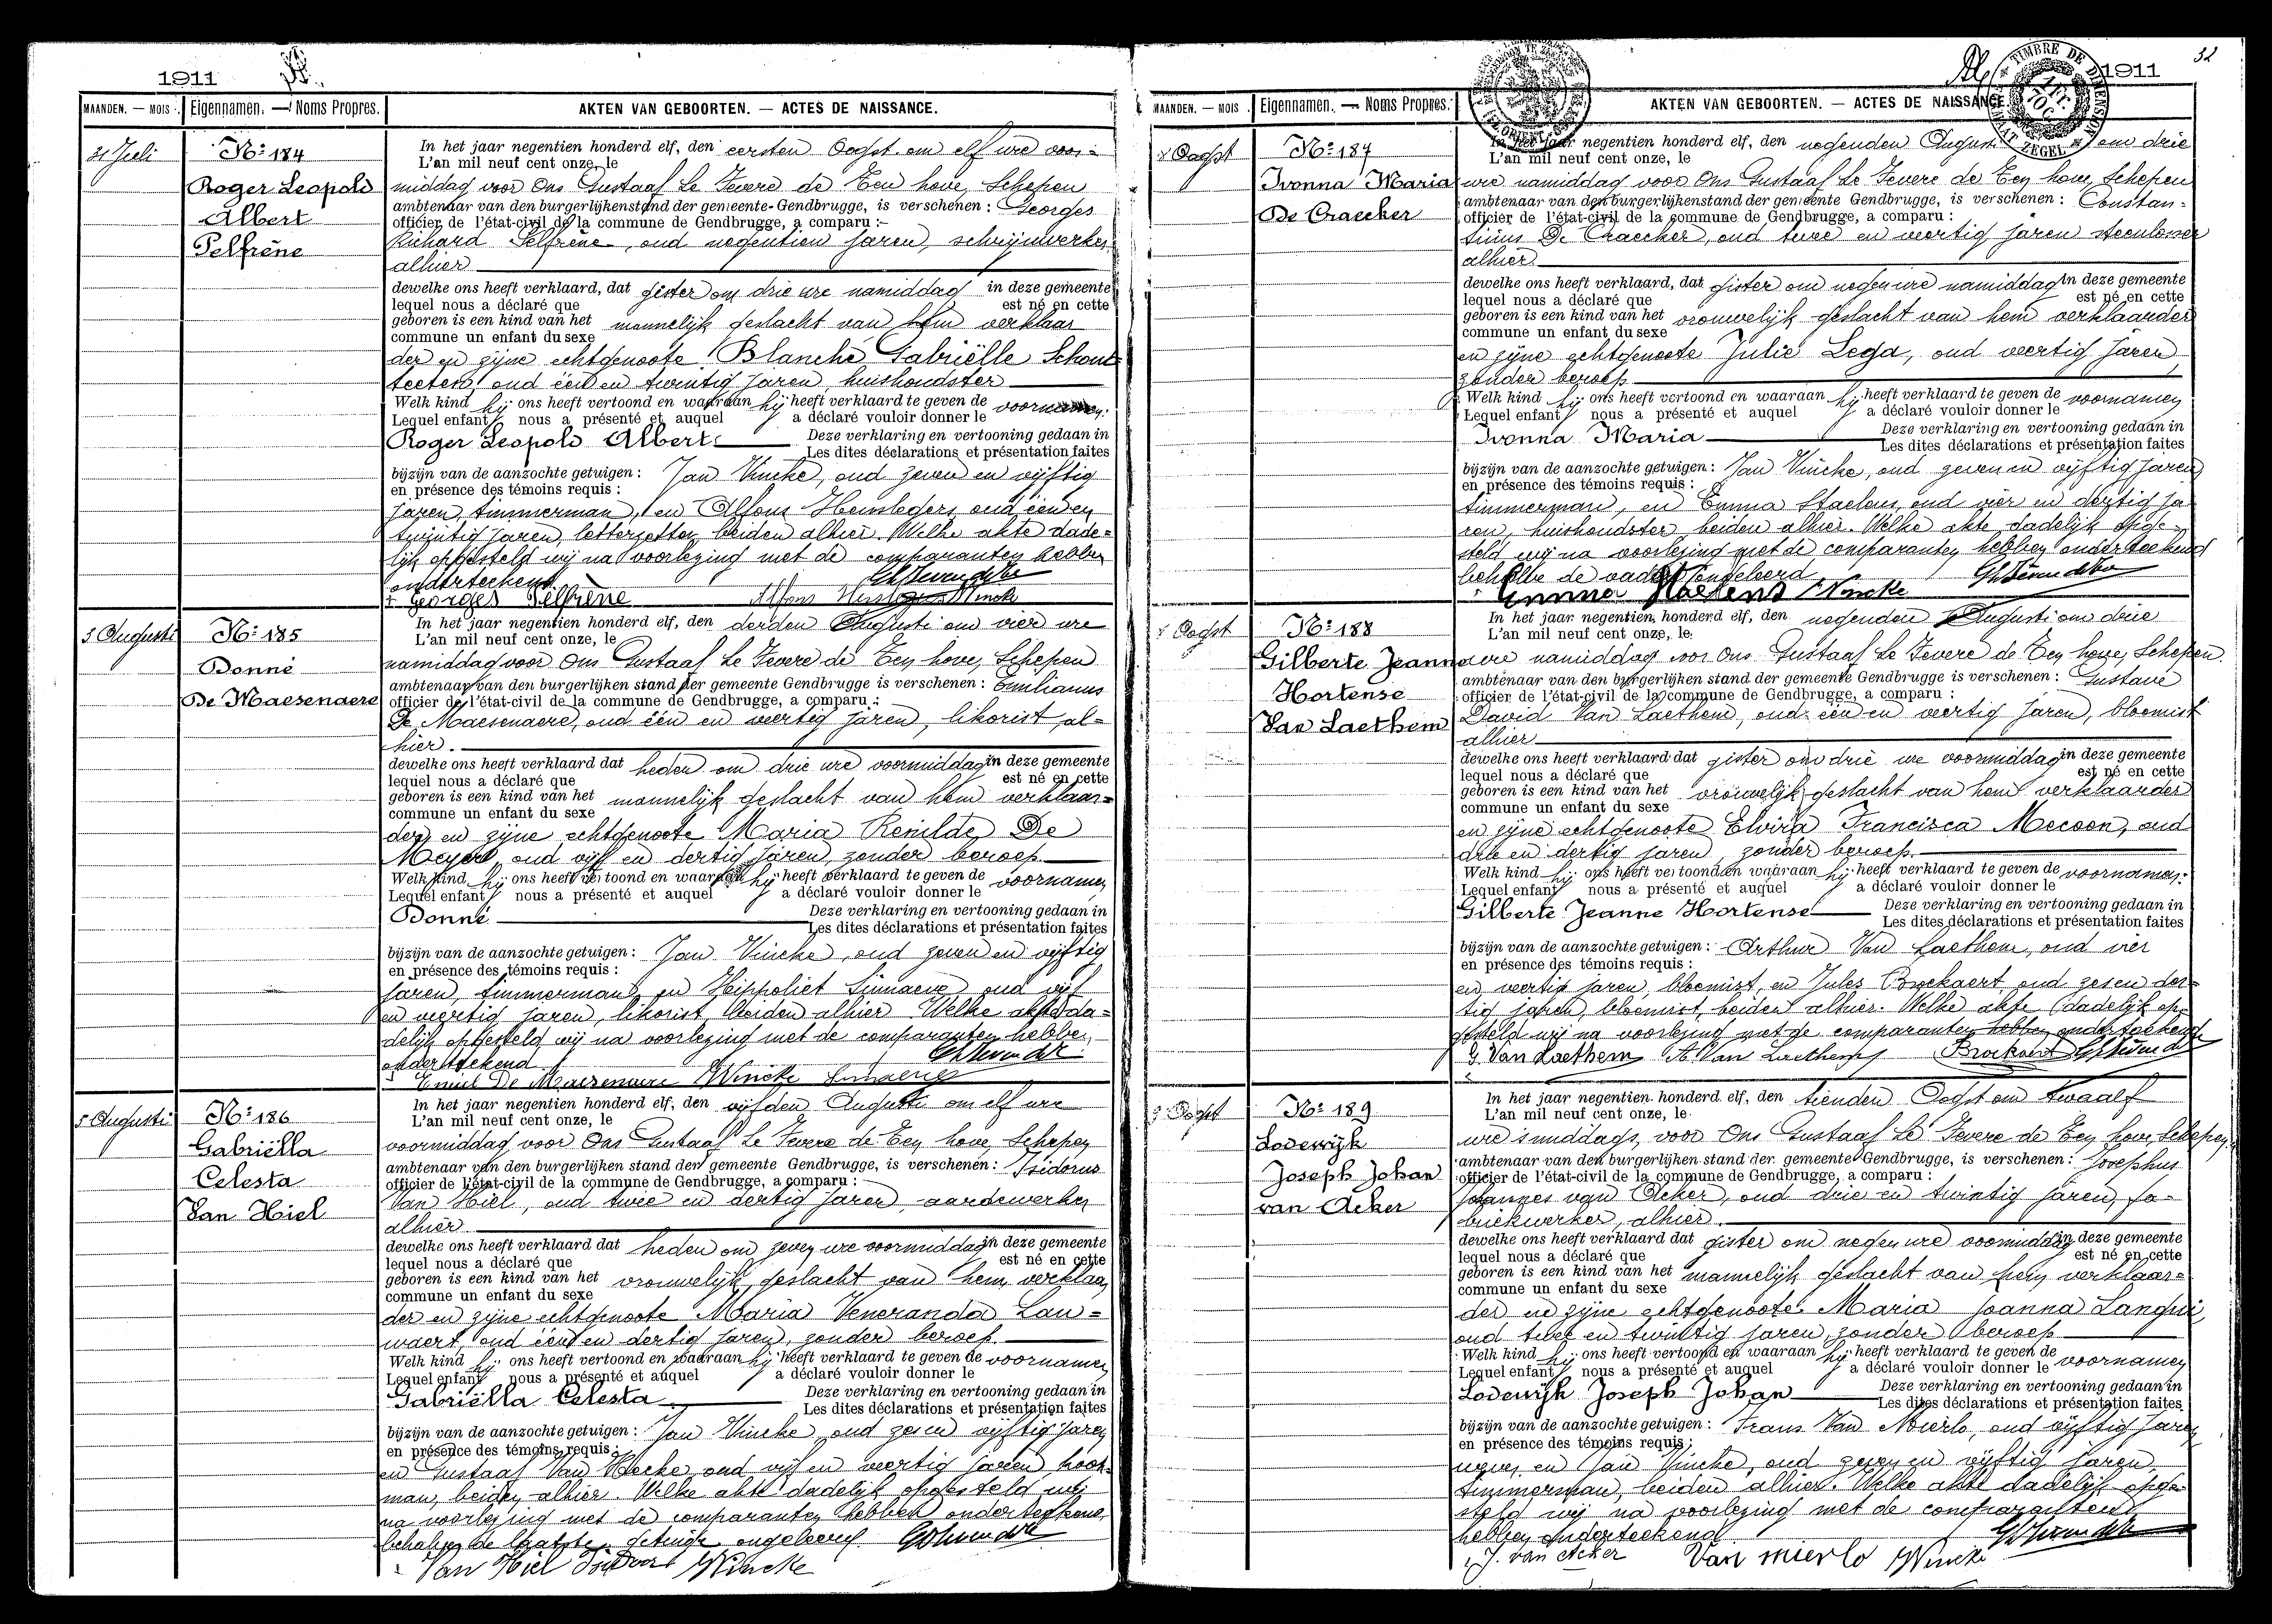 1911
MAANDEN. — MOIS. Eigennamen. — Noms Propres. AKTEN VAN GEBOORTEN. — ACTES DE NAISSANCE.
31 Juli
Nº 184
Roger Leopold
Albert
Pelfrène
In het jaar negentien honderd elf, den eersten Oogst om elf ure voor=
L'an mil neuf cent onze, le
middag voor Ons Gustaaf Le Fevere de Ten hove, Schepen
ambtenaar van den burgerlijkenstand der gemeente-Gendbrugge, is verschenen : Georges
officier de l'état-civil de la commune de Gendbrugge, a comparu :
Richard Pelfrène, oud negentien jaren, schrijnwerker,
alhier
dewelke ons heeft verklaard, dat gister om drie ure namiddag in deze gemeente
lequel nous a déclaré que est né en cette
geboren is een kind van het mannelijk geslacht van hem verklaar
commune un enfant du sexe
der en zijne echtgenoote Blanche Gabriëlle Schout
teeten, oud één en twintig jaren, huishoudster
Welk kind hij ons heeft vertoond en waaraan hij heeft verklaard te geven de voornamen:
Lequel enfant nous a présenté et auquel a déclaré vouloir donner le
Roger Leopold Albert Deze verklaring en vertooning gedaan in
Les dites déclarations et présentation faites
bijzijn van de aanzochte getuigen : Jan Vincke, oud zeven en vijftig
en présence des témoins requis :
jaren, timmerman, en Alfons Heusleders oud één en
twintig jaren, letterzetter, beiden alhier. Welke akte dade=
lijk opgesteld wij na voorlezing met de comparanten hebben
onderteekend
Georges Pelfrène Alfons Vincke
3 Augusti
Nº 185
Donné
De Maesenaere
In het jaar negentien honderd elf, den derden Augusti om vier ure
L'an mil neuf cent onze, le
namiddag voor Ons Gustaaf Le Fevere de Ten hove, Schepen
ambtenaar van den burgerlijken stand der gemeente Gendbrugge is verschenen : Emilianus
officier de l'état-civil de la commune de Gendbrugge, a comparu :
De Maesenaere, oud één en veertig jaren, likorist al=
hier.
dewelke ons heeft verklaard dat heden om drie ure voormiddag in deze gemeente
lequel nous a déclaré que est né en cette
geboren is een kind van het mannelijk geslacht van hem verklaar=
commune un enfant du sexe
der en zijne echtgenoote Maria Reinilde De
Meyer, oud vijf en dertig jaren, zonder beroep.
Welk kind hij ons heeft vertoond en waaraan hij heeft verklaard te geven de voornamen
Lequel enfant nous a présenté et auquel a déclaré vouloir donner le
Donné Deze verklaring en vertooning gedaan in
Les dites déclarations et présentation faites
bijzijn van de aanzochte getuigen : Jan Vincke, oud zeven en vijftig
en présence des témoins requis :
jaren, timmerman, en Hippoliet Sinnaeve oud vijf
en veertig jaren, likorist, beiden alhier Welke akte da=
delijk opgesteld wij na voorlezing met de comparanten hebben
onderteekend
Emiel De Maesenaere Vincke Sinnaeve
5 Augusti
Nº 186
Gabriëlla
Celesta
Van Hiel
In het jaar negentien honderd elf, den vijfden Augusti om elf ure
L'an mil neuf cent onze, le
voormiddag voor Ons Gustaaf Le Fevere de Ten hove, Schepen
ambtenaar van den burgerlijken stand der gemeente Gendbrugge, is verschenen : Isidorus
officier de l'état-civil de la commune de Gendbrugge, a comparu :
Van Hiel, oud twee en dertig jaren aardewerker
alhier.
dewelke ons heeft verklaard dat heden om zeven ure voormiddag in deze gemeente
lequel nous a déclaré que est né en cette
geboren is een kind van het vrouwelijk geslacht van hem verklaar
commune un enfant du sexe
der en zijne echtgenoote Maria Veneranda Lau=
waert, oud één en dertig jaren, zonder beroep.
Welk kind hij ons heeft vertoond en waaraan hij heeft verklaard te geven de voornamen
Lequel enfant nous a présenté et auquel a déclaré vouloir donner le
Gabriëlla Celesta Deze verklaring en vertooning gedaan in
Les dites déclarations et présentation faites
bijzijn van de aanzochte getuigen : Jan Vincke, oud zeven vijftig jaren
en présence des témoins requis :
en Gustaaf Van Hecke, oud vijf en veertig jaren
man, beiden alhier. Welke akte dadelijk opgesteld wij
na voorlezing met de comparanten hebben onderteekend
behalve de laatste getuige ongeleerd
Van Hiel Isidoor Vincke
32
1911
TIMBRE DE DIMENSION
ZEGEL
MAANDEN. — MOIS. Eigennamen. — Noms Propres. AKTEN VAN GEBOORTEN. — ACTES DE NAISSANCE.
8 Oogst
Nº 187
Ivonna Maria
De Craecker
In het jaar negentien honderd elf, den negenden Augusti om drie
L'an mil neuf cent onze, le
ure namiddag voor Ons Gustaaf Le Fevere de Ten hove, Schepen
ambtenaar van den burgerlijkenstand der gemeente Gendbrugge, is verschenen : Constan=
officier de l'état-civil de la commune de Gendbrugge, a comparu :
tinus De Craecker, oud twee en veertig jaren steenlosser
alhier
dewelke ons heeft verklaard, dat gister om negen ure namiddag in deze gemeente
lequel nous a déclaré que est né en cette
geboren is een kind van het vrouwelijk geslacht van hem verklaarder
commune un enfant du sexe
en zijne echtgenoote Julie Lega, oud veertig jaren,
zonder beroep
Welk kind hij ons heeft vertoond en waaraan hij heeft verklaard te geven de voornamen
Lequel enfant nous a présenté et auquel a déclaré vouloir donner le
Ivonna Maria Deze verklaring en vertooning gedaan in
Les dites déclarations et présentation faites
bijzijn van de aanzochte getuigen : Jan Vincke, oud zeven en vijftig jaren,
en présence des témoins requis :
timmerman, en Emma Staelens, oud vier en dertig ja
ren, huishoudster beiden alhier. Welke akte dadelijk opge=
steld wij na voorlezing met de comparanten hebben onderteekend
behalve de vader ongeleerd
Emma Staelens Vincke
8 Oogst
Nº 188
Gilberte Jeanne
Hortense
Van Laethem
In het jaar negentien honderd elf, den negenden Augusti om drie
L'an mil neuf cent onze, le
ure namiddag voor Ons Gustaaf Le Fevere de Ten hove, Schepen
ambtenaar van den burgerlijken stand der gemeente Gendbrugge is verschenen : Gustave
officier de l'état-civil de la commune de Gendbrugge, a comparu :
David Van Laethem, oud één en veertig jaren, bloemist
alhier
dewelke ons heeft verklaard dat gister om drie ure voormiddag in deze gemeente
lequel nous a déclaré que est né en cette
geboren is een kind van het vrouwelijk geslacht van hem verklaarder
commune un enfant du sexe
en zijne echtgenoote Elvira Francisca Mecoen, oud
drie en dertig jaren, zonder beroep.
Welk kind hij ons heeft vertoond en waaraan hij heeft verklaard te geven de voornamen:
Lequel enfant nous a présenté et auquel a déclaré vouloir donner le
Gilberte Jeanne Hortense Deze verklaring en vertooning gedaan in
Les dites déclarations et présentation faites
bijzijn van de aanzochte getuigen : Arthur Van Laethem, oud vier
en présence des témoins requis :
en veertig jaren, bloemist, en Jules Brockaert, oud zes en der=
tig jaren, bloemist, beiden alhier. Welke akte dadelijk op=
gesteld wij na voorlezing met de comparanten hebben onderteekend
G. Van Laethem A. Van Laethem Brockaert
9 Oogst
Nº 189
Lodewijk
Joseph Johan
van Acker
In het jaar negentien honderd elf, den tienden Oogst om twaalf
L'an mil neuf cent onze, le
ure 's middags, voor Ons Gustaaf Le Fevere de Ten hove, Schepen,
ambtenaar van den burgerlijken stand der gemeente Gendbrugge, is verschenen : Josephus
officier de l'état-civil de la commune de Gendbrugge, a comparu :
Johannes van Acker, oud drie en twintig jaren, fa=
briekwerker, alhier.
dewelke ons heeft verklaard dat gister om negen ure voormiddag in deze gemeente
lequel nous a déclaré que est né en cette
geboren is een kind van het mannelijk geslacht van hem verklaar=
commune un enfant du sexe
der en zijne echtgenoote Maria Joanna Langui,
oud twee en twintig jaren, zonder beroep
Welk kind hij ons heeft vertoond en waaraan hij heeft verklaard te geven de voornamen
Lequel enfant nous a présenté et auquel a déclaré vouloir donner le
Lodewijk Joseph Johan Deze verklaring en vertooning gedaan in
Les dites déclarations et présentation faites
bijzijn van de aanzochte getuigen : Frans Van Mierlo, oud vijftig jaren
en présence des témoins requis :
en Jan Vincke, oud zeven en vijftig jaren
timmerman, beiden alhier. Welke akte dadelijk opge=
steld wij na voorlezing met de comparanten
hebben onderteekend
J. van Acker Van mierlo Vincke